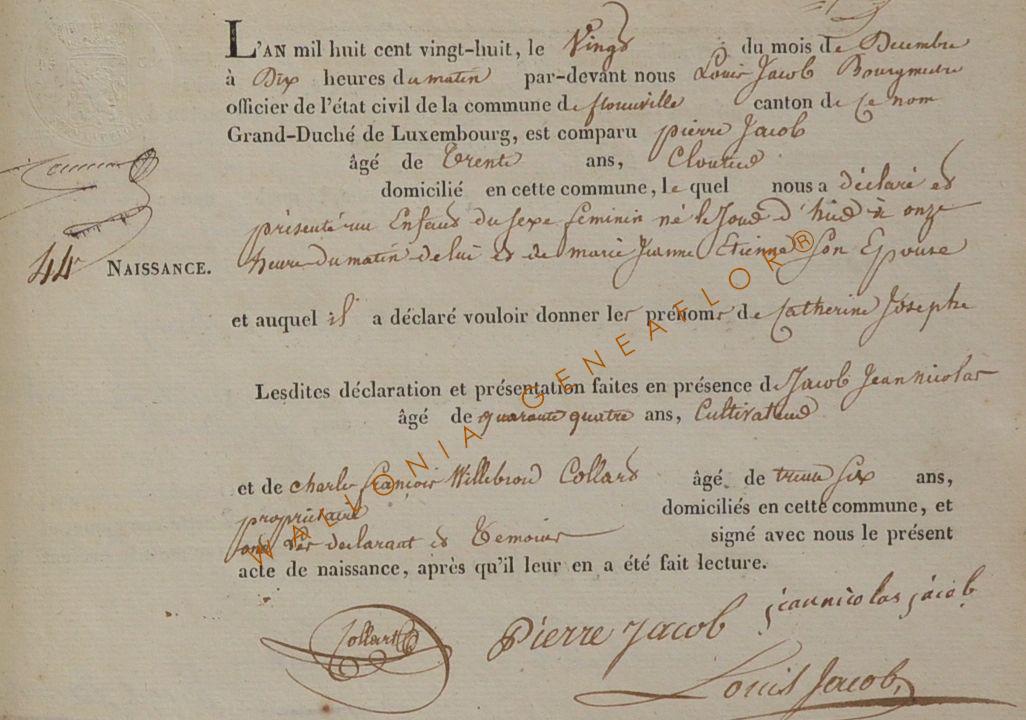 L'AN mil huit cent vingt-huit, le Vingt du mois de Decembre
à Dix heures du matin par-devant nous Louis Jacob Bourgmestre
officier de l'état civil de la commune de florenville canton de ce nom
Grand-Duché de Luxembourg, est comparu pierre Jacob
âgé de trente ans, Cloutier
domicilié en cette commune, le quel nous a déclaré et
présenté un Enfant du sexe feminin né le Jour d'hui à onze
heure du matin de lui et de marie Jeanne Etienne Son Epouse
44 NAISSANCE.
et auquel il a déclaré vouloir donner les prénoms de Catherine Josephe
Lesdites déclaration et présentation faites en présence de Jacob Jean nicolas
âgé de quarante quatre ans, Cultivateur
et de charle françois Willebrord Collard âgé de trente Six ans,
propriétaire domiciliés en cette commune, et
ont les declarant et Temoins signé avec nous le présent
acte de naissance, après qu'il leur en a été fait lecture.
Collart Pierre Jacob jean nicolas jacob
Louis Jacob
WALLONIA GENEAFLOR®